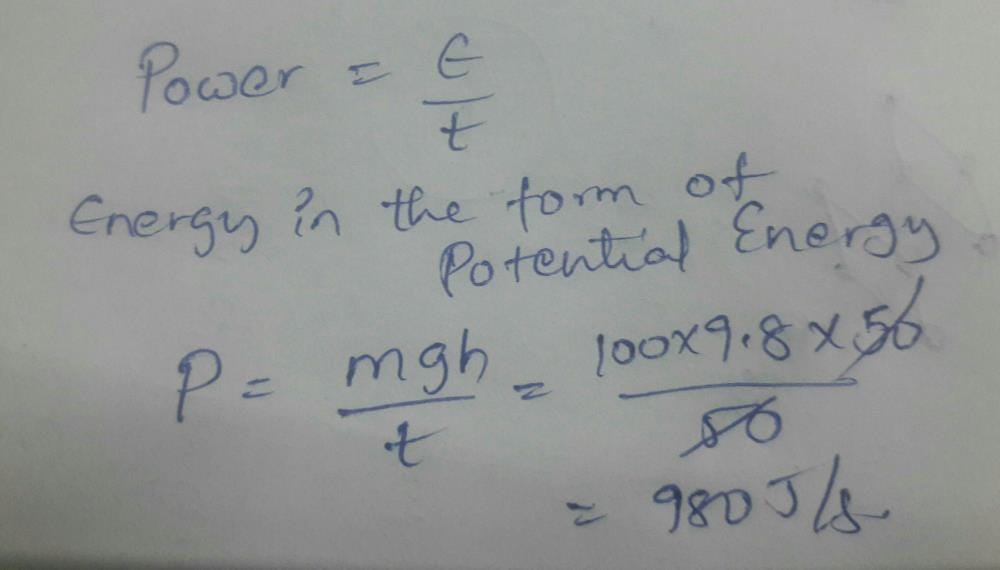 Power = E/t
Energy in the form of
Potential Energy
P = mgh/t = 100x9.8x50/50
= 980 J/s